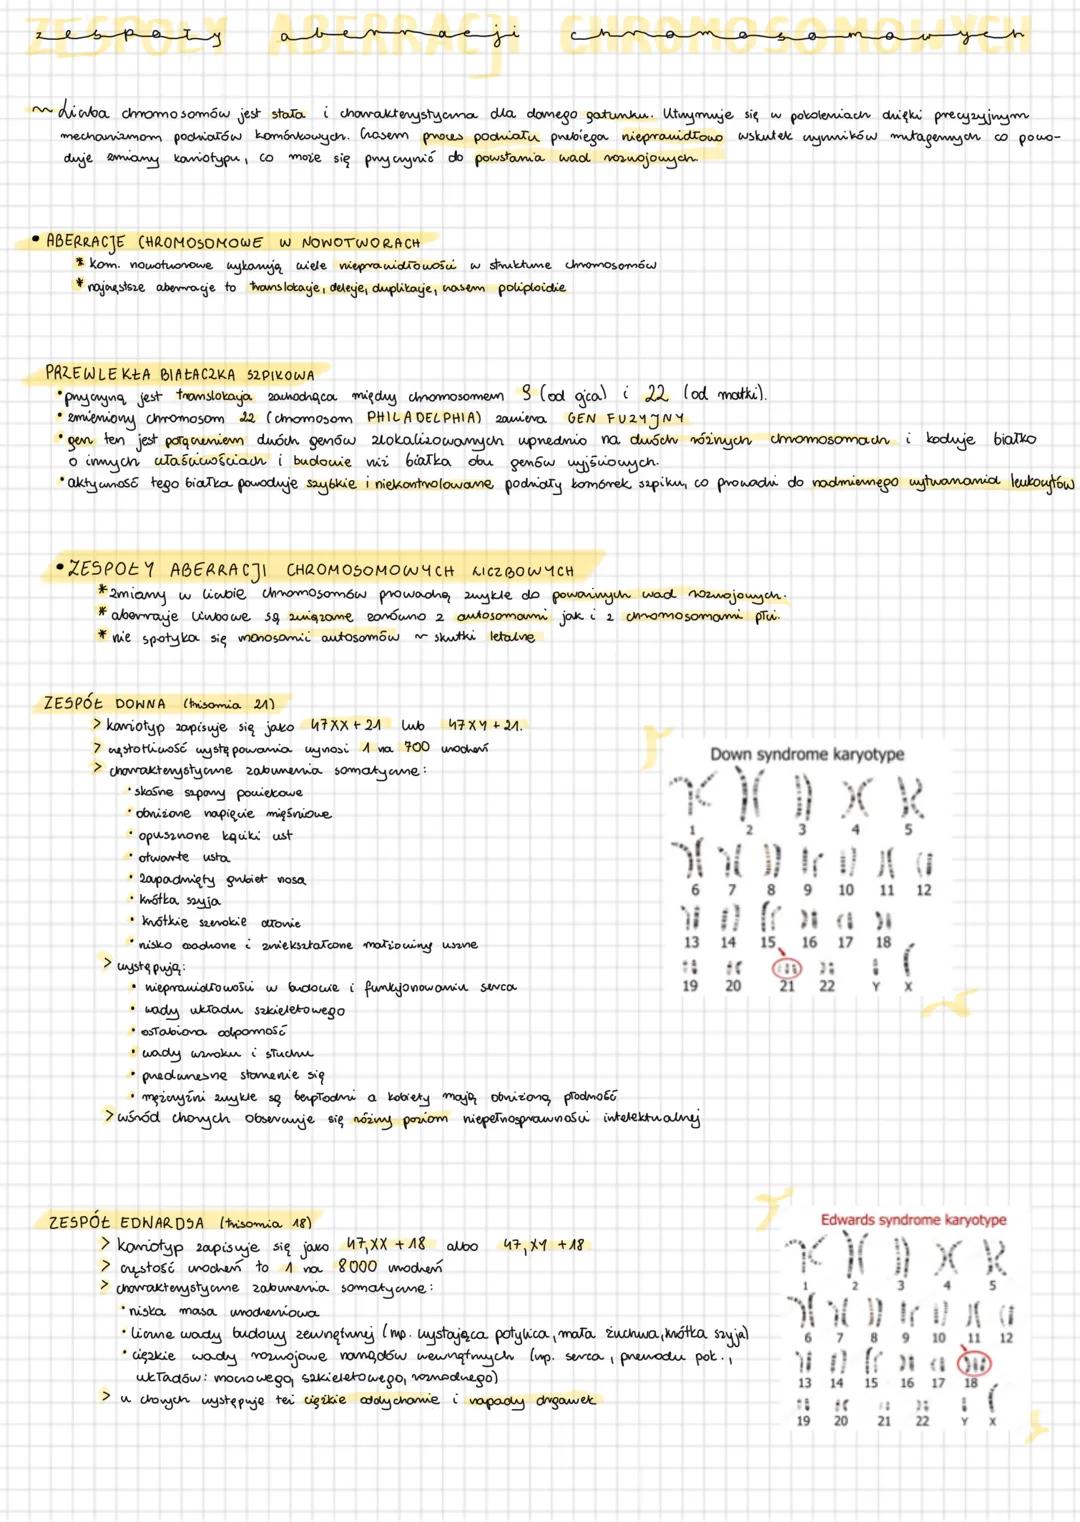 zespoły aberracji chromosomowych
~ Liczba chromosomów jest stała i charakterystyczna dla danego gatunku. Utrzymuje się w pokoleniach dzięki precyzyjnym
mechanizmom podziałów komórkowych. Czasem proces podziału przebiega nieprawidłowo wskutek czynników mutagennych co powo-
duje zmiany kariotypu, co może się przyczynić do powstania wad rozwojowych.
• ABERRACJE CHROMOSOMOWE W NOWOTWORACH
* kom. nowotworowe wykazują wiele nieprawidłowości w strukturze chromosomów
* najczęstsze aberracje to translokacje, delecje, duplikacje, czasem poliploidie
PRZEWLEKŁA BIAŁACZKA SZPIKOWA
• przyczyną jest translokacja zachodząca między chromosomem 9 (od ojca) i 22 (od matki).
• zmieniony chromosom 22 (chromosom PHILADELPHIA) zawiera GEN FUZYJNY
• gen ten jest połączeniem dwóch genów zlokalizowanych uprzednio na dwóch różnych chromosomach i koduje białko
o innych właściwościach i budowie niż białka obu genów wyjściowych.
• aktywność tego białka powoduje szybkie i niekontrolowane podziały komórek szpiku, co prowadzi do nadmiernego wytwarzania leukocytów
• ZESPOŁY ABERRACJI CHROMOSOMOWYCH LICZBOWYCH
* zmiany w liczbie chromosomów prowadzą zwykle do poważnych wad rozwojowych.
* aberracje liczbowe są związane zarówno z autosomami jak i z chromosomami płci.
* nie spotyka się monosomii autosomów ~ skutki letalne
ZESPÓŁ DOWNA (trisomia 21)
> kariotyp zapisuje się jako 47XX+21 lub 47XY+21.
> częstotliwość występowania wynosi 1 na 700 urodzeń
> charakterystyczne zaburzenia somatyczne:
• skośne szpary powiekowe
• obniżone napięcie mięśniowe
• opuszczone kąciki ust
• otwarte usta
• zapadnięty grzbiet nosa
• krótka szyja
• krótkie szerokie dłonie
• nisko osadzone i zniekształcone małżowiny uszne
> występują:
• nieprawidłowości w budowie i funkcjonowaniu serca
• wady układu szkieletowego
• osłabiona odporność
• wady wzroku i słuchu
• przedwczesne starzenie się
• mężczyźni zwykle są bezpłodni a kobiety mają obniżoną płodność
> wśród chorych obserwuje się różny poziom niepełnosprawności intelektualnej
Down syndrome karyotype
1 2 3 4 5
6 7 8 9 10 11 12
13 14 15 16 17 18
19 20 21 22 Y X
ZESPÓŁ EDWARDSA (trisomia 18)
> kariotyp zapisuje się jako 47,XX +18 albo 47,XY +18
> częstość urodzeń to 1 na 8000 urodzeń
> charakterystyczne zaburzenia somatyczne:
• niska masa urodzeniowa
• liczne wady budowy zewnętrznej (np. wystająca potylica, mała żuchwa, krótka szyja)
• ciężkie wady rozwojowe narządów wewnętrznych (np. serca, przewodu pok.,
układów: moczowego, szkieletowego, rozrodczego)
> u chorych występuje też ciężkie oddychanie i napady drgawek
Edwards syndrome karyotype
1 2 3 4 5
6 7 8 9 10 11 12
13 14 15 16 17 18
19 20 21 22 Y X